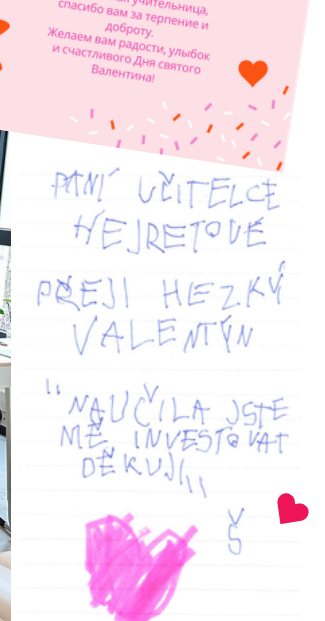 учительница,
спасибо вам за терпение и
доброту.
Желаем вам радости, улыбок
и счастливого Дня святого
Валентина!
PANÍ UČITELCE
HEJRETOVÉ
PŘEJI HEZKÝ
VALENTÝN
"NAUČILA JSTE
MĚ INVESTOVAT
DĚKUJI„
Š